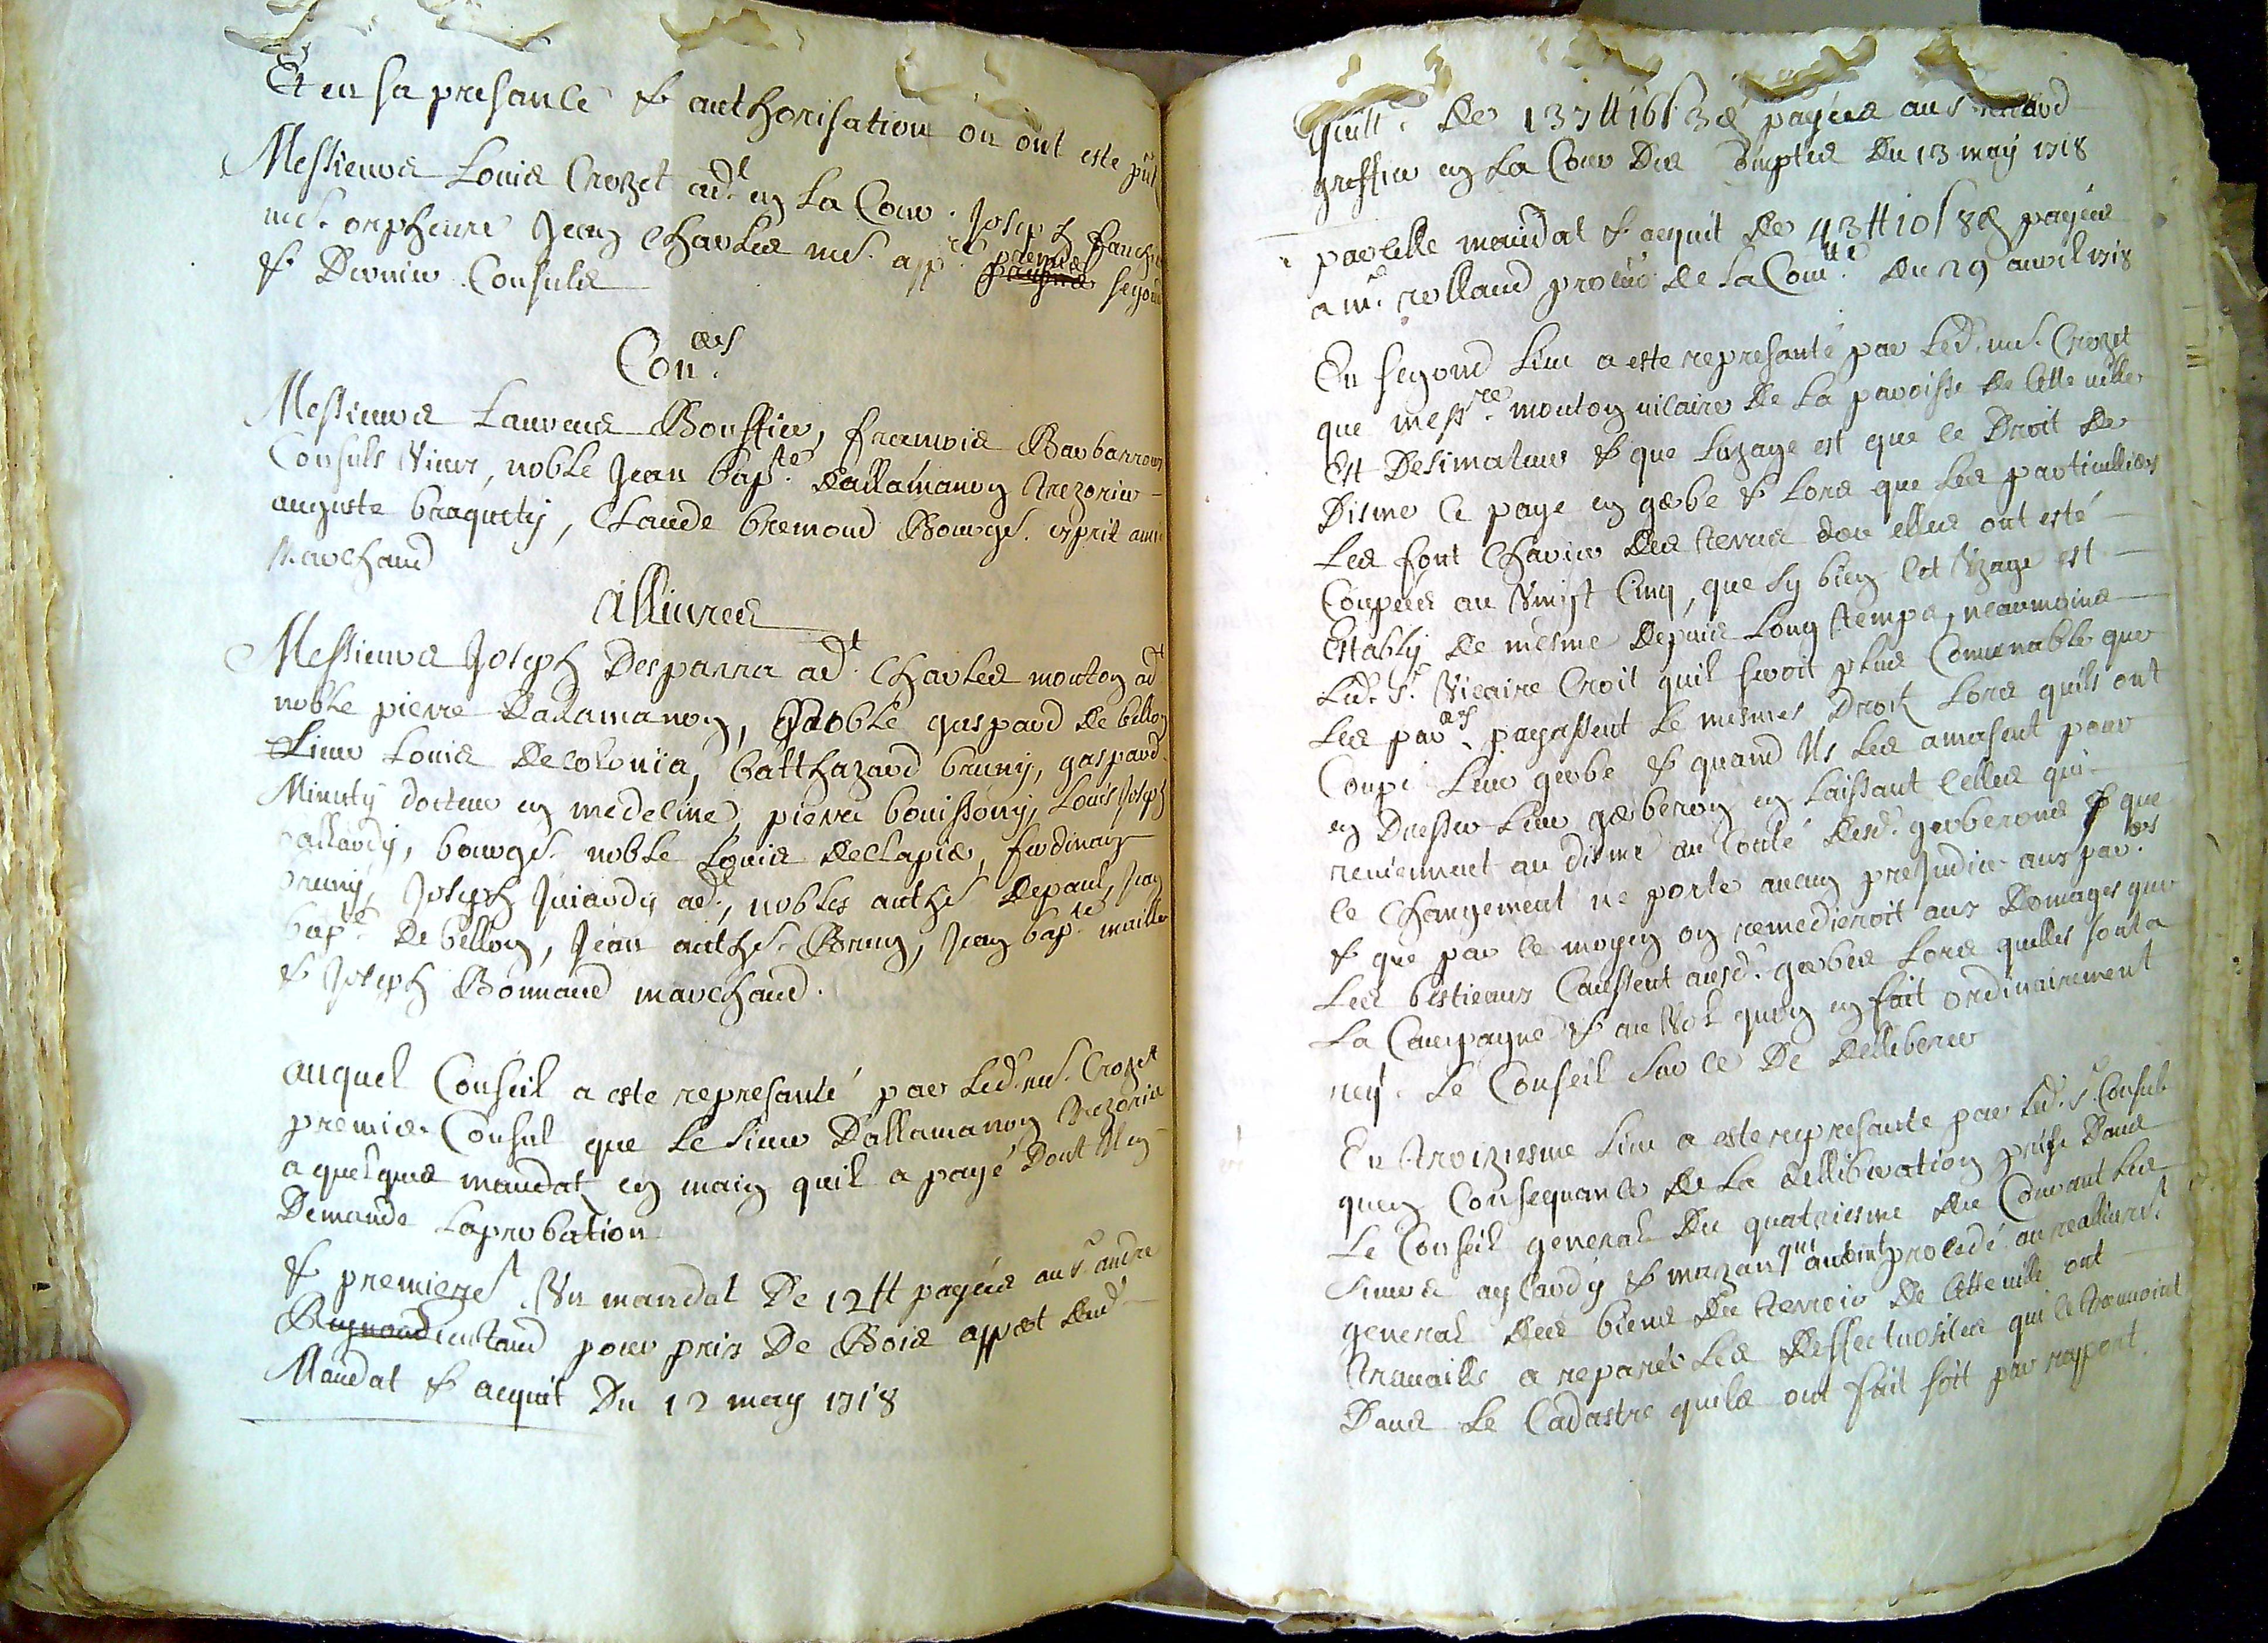 Et en sa presance & authorisation on ont este
Messieurs Louis Crozet adt. en la Cour. Joseph
me. orpheure Jean Charles me. app.re premier segond
& Dernier Consuls
Con.ers
Messieurs Laurens Bouffier, francois Barbarroux
Consuls Vieux, noble Jean bap.te Dallamanon trezorier
auguste braquety, Claude bremond Bourge. esprit
Marchand
Allivres
Messieurs Joseph Despanna adt. Charles mouton adt
noble pierre Dallamanon, noble gaspard de bellon
Sieur Louis Decolonia, balthazard bruny, gaspard
Minuty docteur en medecine, pierre bouissony, Louis Joseph
gallardy, bourge. noble Louis Declapier, ferdinan
bruny, Joseph Juiardy adt., nobles anthe. Depaul, Jean
bap.te De bellon, Jean anthe. Brun, Jean bap.te
& Joseph Bonnaud marchand.
auquel Conseil a este represanté par led. me. Crozet
premier Consul que le sieur Dallamanon trezorier
a quelques mandat en main quil a payé Dont Il en
Demande Laprobation
& premieret Un mandat De 12 # payées au sr. andre
pour prix De Bois appert dud.
Mandat & acquit Du 12 may 1718
quitt. De 137 # 16 s 3 d payées au s
greffier en la Cour Des Comptes Du 13 may 1718
pareille mandat & acquit De 43 # 10 s 8 d payées
a me. rolland procur de la Com.té du 29 avril 1718
En segond lieu a este represanté par led. me. Crozet
que mess.re mouton vicaire De la paroisse de cette ville
Est Desimateur & que luzage est que le Droit de
Disme ce paye en gerbe & lors que les particulliers
les font charier des terres dou elles ont esté
Coupées au Vingt Cinq, que sy bien cet Vzage est
Estably de mesme depuis long temps, neaumoins
led. sr. Vicaire Croit quil seroit plus Convenable que
les par.ers payassent le mesmes Droit lors quils ont
Coupé leur gerbe & quand Ils les amasent pour
en Dresser leur gerberon en laissant celles qui
reviennent au disme au Conté Desd. gerberons & que
le Changement ne porte aucun prejudice aux par.ers
& que par ce moyen on remedieroit aux Domages que
les bestieaux Caussent ausd. gerbes lors quelles sont a
La Campagne & au Vol quon en fait ordinairement
rey. le Conseil sur ce De delliberer
En troiziesme lieu a este represante par led. sr. Consul
quen Consequance de la delliberation prise Dans
Le Conseil general Du quatriesme du Courant les
sieurs aylardy & mazan qui avoint procedé au reallivret.
general des biens Du terroir de cette ville ont
travaille a reparer les deffectuosites qui ce trouvoint
Dans le Cadastre quils ont fait soit par raport.